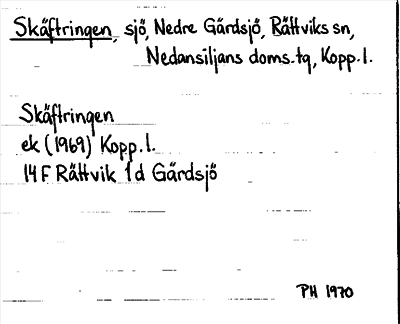 Skäftringen, sjö, Nedre Gärdsjö, Rättviks sn,
Nedansiljans doms.tg, Kopp.l.
Skäftringen
ek (1969) Kopp.l.
14 F Rättvik 1d Gärdsjö
PH 1970